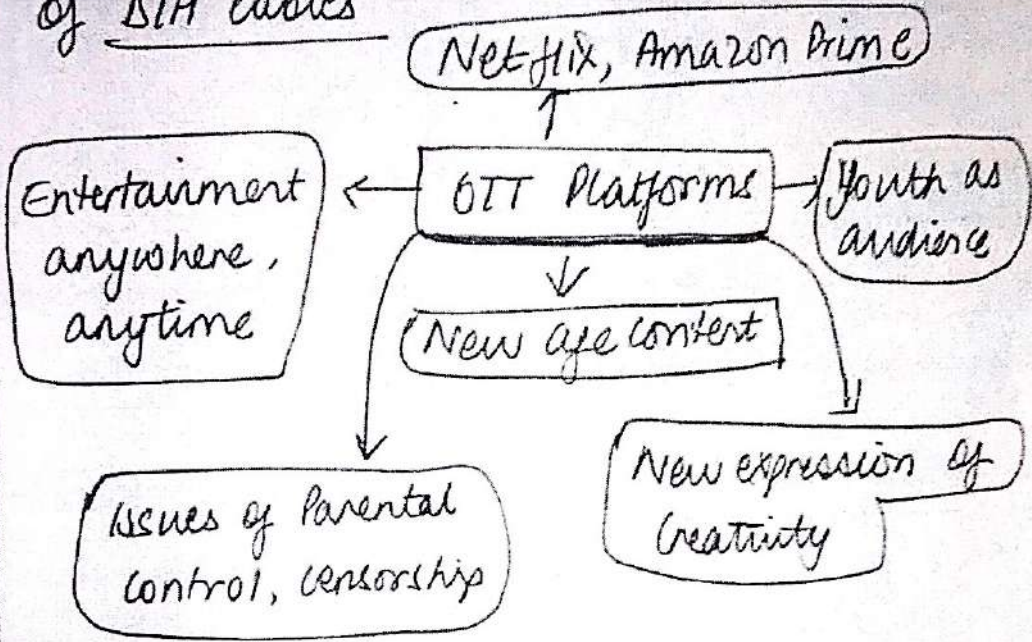 of DTH cables
Netflix, Amazon Prime
Entertainment
anywhere,
anytime
OTT Platforms
Youth as
audience
New age content
Issues of Parental
control, censorship
New expression of
Creativity